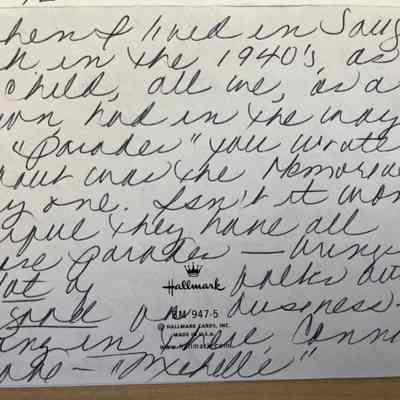 when I lived in Saug
in the 1940's, as
child, all we, as a
town had in the way
"parades" you wrote
about was the Memorial
Day one. Isn't it won
they have all
parades — brings
lot of folks out
good for business —
in these,
"Michelle"
Hallmark
947-5
© HALLMARK CARDS, INC.
MADE IN U.S.A.
www.hallmark.com